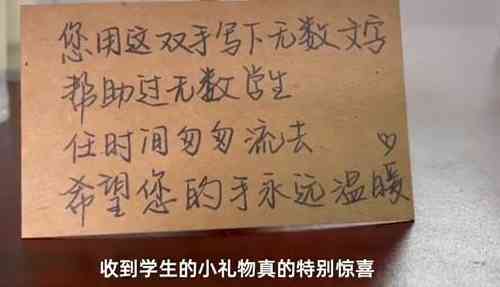 您用这双手写下无数文字
帮助过无数学生
任时间匆匆流去 ♡
希望您的手永远温暖
收到学生的小礼物真的特别惊喜